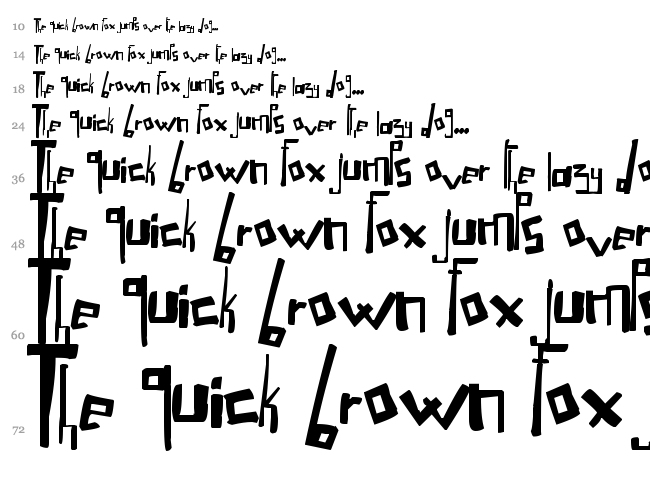 10 The quick brown fox jumps over the lazy dog...
14 The quick brown fox jumps over the lazy dog...
18 The quick brown fox jumps over the lazy dog...
24 The quick brown fox jumps over the lazy dog...
36 The quick brown fox jumps over the lazy do
48 The quick brown fox jumps over
60 The quick brown fox jumps
72 The quick brown fox